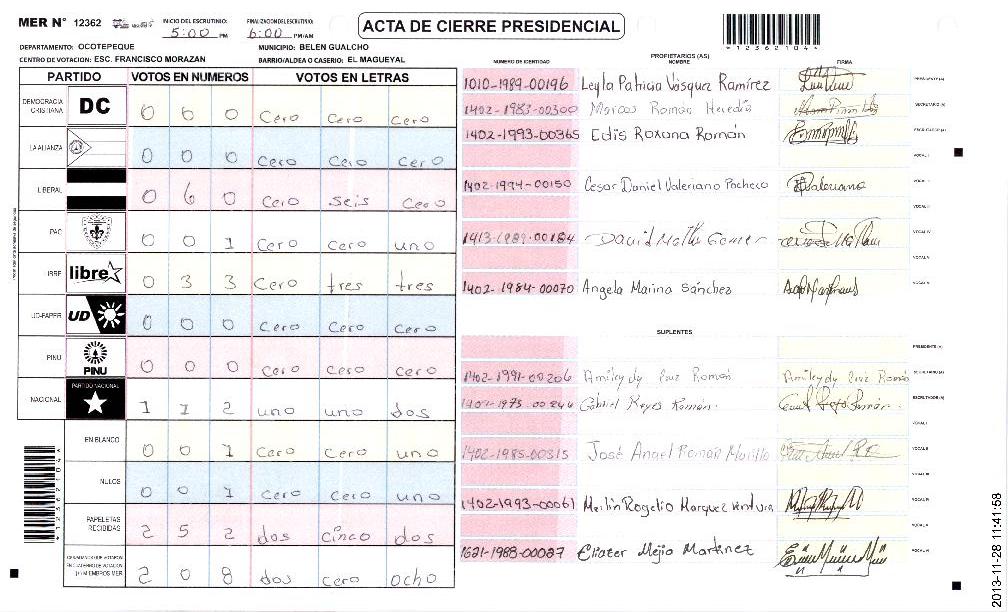 MER N° 12362 INICIO DEL ESCRUTINIO: 5:00 PM FINALIZACION DEL ESCRUTINIO: 6:00 PM/AM ACTA DE CIERRE PRESIDENCIAL
*12362104*
DEPARTAMENTO: OCOTEPEQUE MUNICIPIO: BELEN GUALCHO
CENTRO DE VOTACION: ESC. FRANCISCO MORAZAN BARRIO/ALDEA O CASERIO: EL MAGUEYAL
PARTIDO VOTOS EN NUMEROS VOTOS EN LETRAS
DEMOCRACIA CRISTIANA DC 0 0 0 Cero Cero Cero
LA ALIANZA 0 0 0 Cero Cero Cero
LIBERAL 0 6 0 Cero Seis Cero
PAC 0 0 1 Cero Cero uno
LIBRE libre 0 3 3 Cero tres tres
UD-FAPER UD 0 0 0 Cero Cero Cero
PINU PINU 0 0 0 Cero Cero Cero
NACIONAL PARTIDO NACIONAL 1 1 2 uno uno dos
EN BLANCO 0 0 1 Cero Cero uno
NULOS 0 0 1 Cero Cero uno
PAPELETAS RECIBIDAS 2 5 2 dos Cinco dos
CIUDADANOS QUE VOTARON EN CUADERNO DE VOTACION (+) MIEMBROS MER 2 0 8 dos cero ocho
*12362104*
PROPIETARIOS (AS)
NUMERO DE IDENTIDAD NOMBRE FIRMA
1010-1989-00196 Leyla Patricia Vásquez Ramírez PRESIDENTE (A)
1402-1983-00300 Marcos Roman Heredia SECRETARIO (A)
1402-1993-00365 Edis Roxana Román ESCRUTADOR (A)
VOCAL I
1402-1994-00150 Cesar Daniel Valeriano Pacheco VOCAL II
VOCAL III
1413-1989-00184 David VOCAL IV
VOCAL V
1402-1984-00070 Angela Marina Sánchez VOCAL VI
SUPLENTES
PRESIDENTE (A)
1402-1991-00206 Amileydy Cruz Román Amileydy Cruz Román SECRETARIO (A)
1402-1975-00244 Gabriel Reyes Román ESCRUTADOR (A)
VOCAL I
1402-1985-00315 José Angel Román Murillo VOCAL II
VOCAL III
1402-1993-00061 Merlin Rogelio Marquez Ventura VOCAL IV
VOCAL V
1621-1988-00087 Eliater Mejia Martinez VOCAL VI
2013-11-28 11:41:58